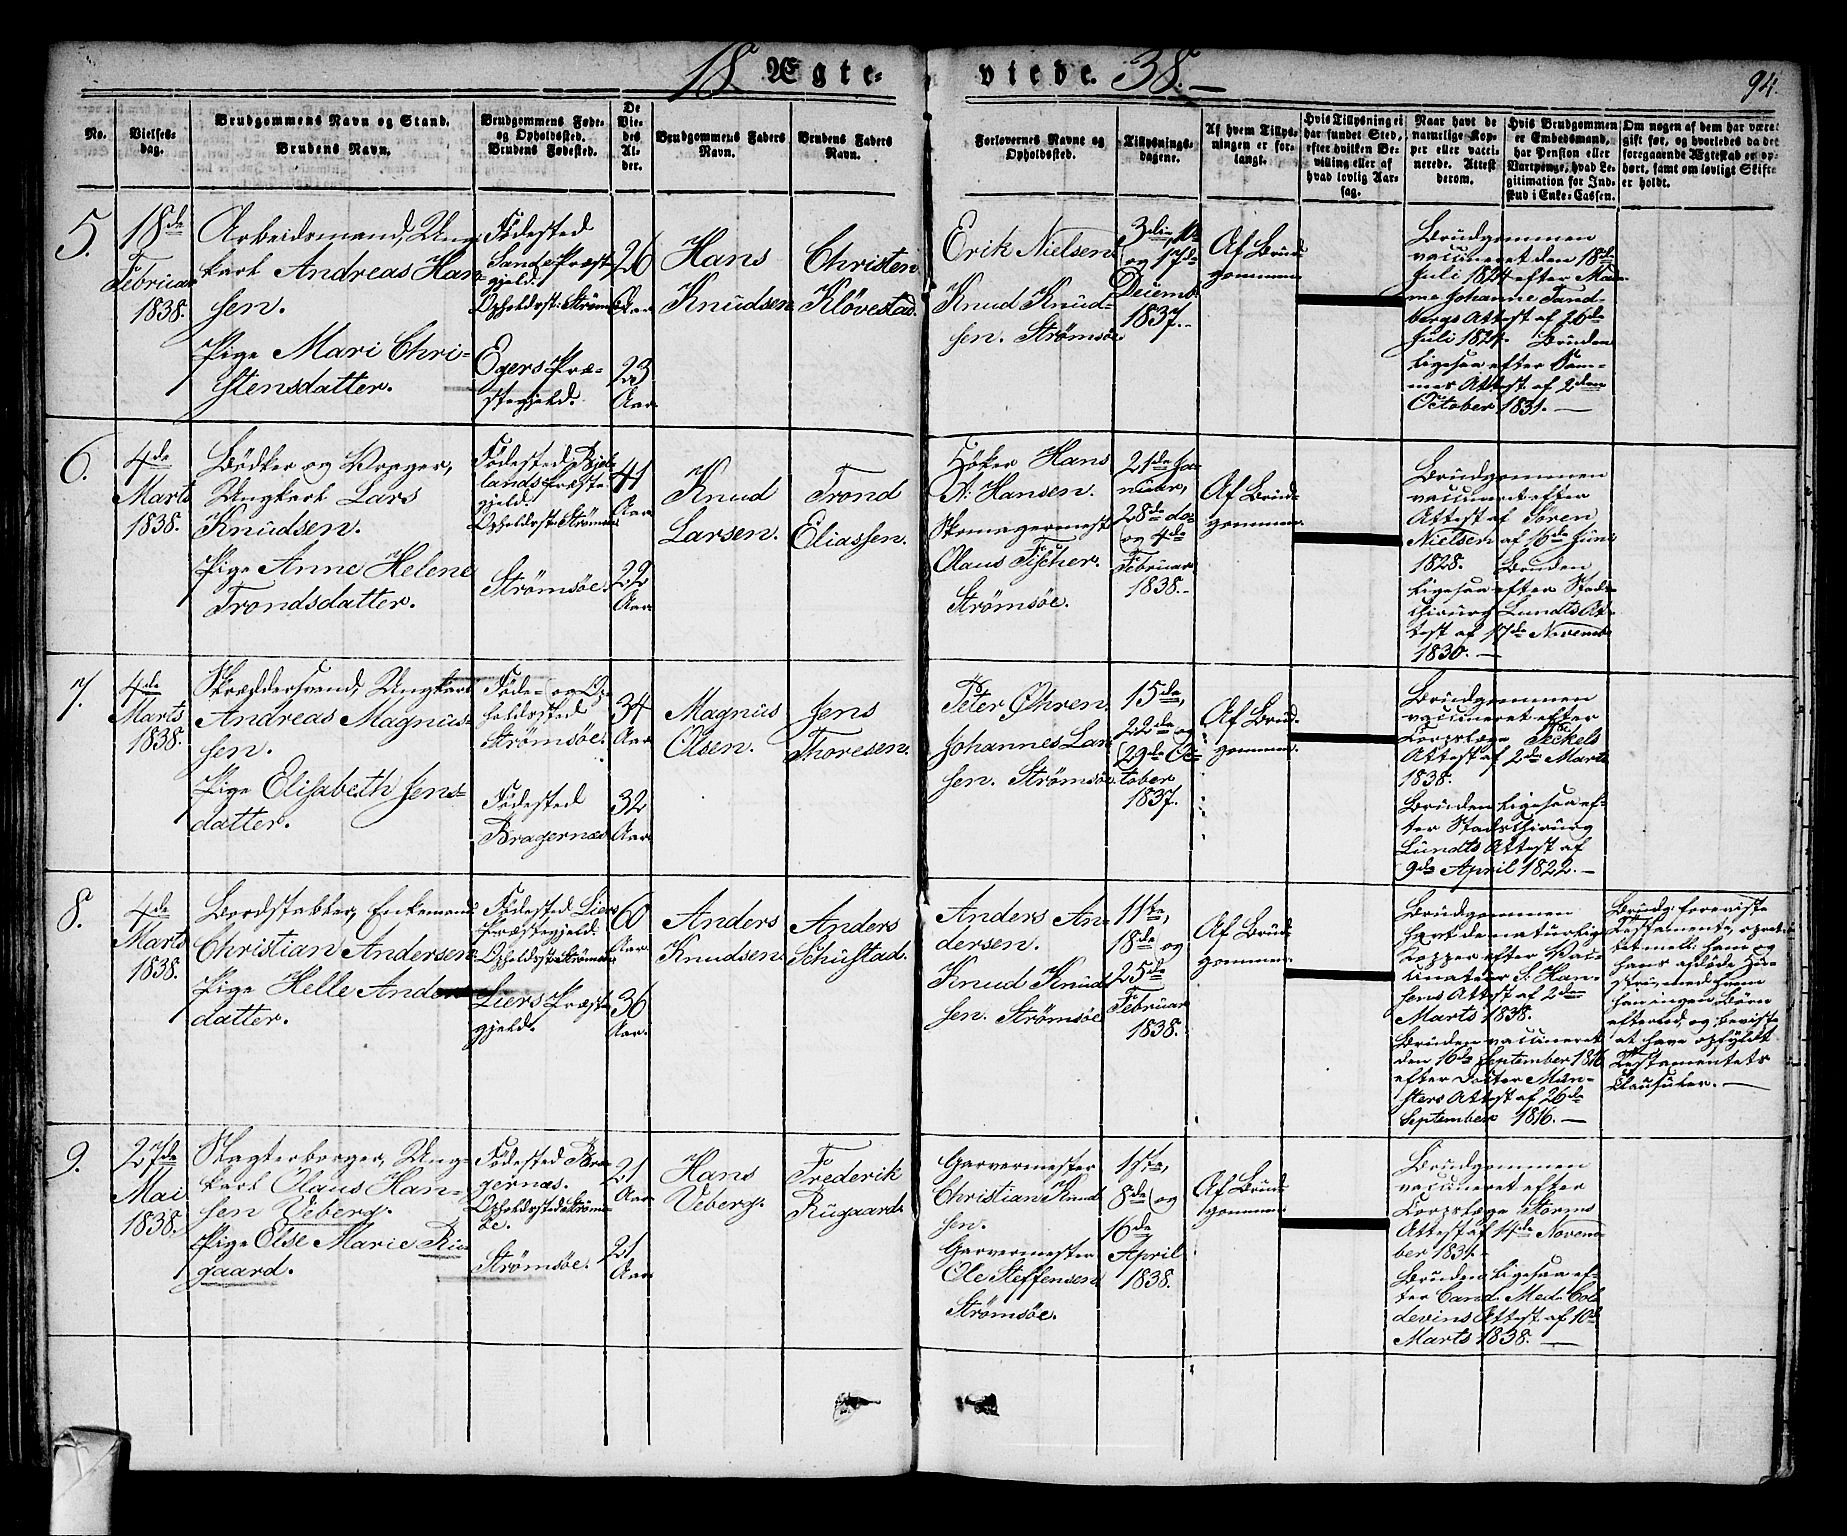 18 Ægteviede. 38.
94.
No.
Vielsesdag.
Brudgommens Navn og Stand.
Brudens Navn.
Brudgommens Føde-
og Opholdssted.
Brudens Fødested.
De
Vie-
des
Al-
der.
Brudgommens Faders
Navn.
Brudens Faders
Navn.
Forlovernes Navne og
Opholdssted.
Tillysnings-
dagene.
Af hvem Tillys-
ningen er for-
langt.
Hvis Tillysning ei
har fundet Sted,
efter hvilken Be-
villing eller af
hvad lovlig Aar-
sag.
Naar havt de
naturlige Kop-
per eller vacci-
nerede. Attest
derom.
Hvis Brudgommen
er Embedsmand,
har Pension eller
Vartpenge, hvad Le-
gitimation for Ind-
skud i Enke-Cassen.
Om nogen af dem har været
gift før, og hvorledes da det
foregaaende Ægteskab er op-
hørt, samt om lovligt Skifte
er holdt.
5.
18de
Februar
1838.
Arbeidsmand, Ung-
karl Andreas Han-
sen.
Pige Mari Chri-
stensdatter.
Fødested
Sande Præste-
gjeld.
Opholdsst: Strømsøe
Egers Præ-
stegjeld.
26
Aar
23
Aar
Hans
Knudsen
Christen
Kløvestad.
Erik Nielsen
Knud Knud-
sen. Strømsøe
3die, 10de
og 17de
Decemb.
1837.
Af Brud-
gommen
Brudgommen
vaccineret den 18de
Juli 1824 efter Mada-
me Johanne Sand-
bergs Attest af 26de
Juli 1824. Bruden
ligesaa efter Sam-
mes Attest af 2den
October 1831.
6.
4de
Marts
1838.
Bødker og Vrager,
Ungkarl Lars
Knudsen.
Pige Anne Helene
Trondsdatter.
Fødested
lands Præste-
gjeld.
Opholdsst: Strømsøe
Strømsøe.
41
Aar
22
Aar
Knud
Larsen.
Trond
Eliassen.
Høker Hans
A: Hansen.
Skomagermest
Olaus Fischer.
Strømsøe.
21de Ja-
nuar,
28de do
og 4de
Februar
1838.
Af Brud-
gommen.
Brudgommen
vaccineret efter
Attest af Søren
Nielsen af 16de Juni
1828. Bruden
ligesaa efter Stads-
chirurg Lundts At-
test af 17de Novemb.
1830.
7.
4de
Marts
1838.
Skræddersvend, Ungkarl
Andreas Magnus-
sen.
Pige Elisabeth Jens-
datter.
Føde- og Op-
holdssted
Strømsøe.
Fødested
Bragernæs
34
Aar
32
Aar
Magnus
Olsen.
Jens
Thoresen.
Peter Øhren.
Johannes Lar-
sen. Strømsøe
15de,
22de og
29de Oc-
tober
1837.
Af Brud-
gommen.
Brudgommen
vaccineret efter
Corpslæge
Attest af 2de Marts
1838.
Bruden ligesaa ef-
ter Stadschirurg
Lundts Attest af
9de April 1822.
8.
4de
Marts
1838.
Bordstabler, Enkemand
Christian Andersen.
Pige Helle Anders-
datter.
Fødested Liers
Præstegjeld.
Opholdsst: Strømsøe
Liers Præste-
gjeld.
60
Aar.
36
Aar.
Anders
Knudsen.
Anders
Schustad.
Anders An-
dersen.
Knud Knud-
sen. Strømsøe
11te,
18de og
25de
Februar
1838.
Af Brud-
gommen.
Brudgommen
havt de naturlige
Kopper efter Vac-
cinateur S: Han-
sens Attest af 2den
Marts 1838.
Bruden vaccineret
den 16de September 1816
efter Docter Mün-
sters Attest af 26de
September 1816.
Brudg: foreviste
Testamente, opret-
tet mell: ham og
hans afdøde Hu-
stru, med hvem
han ingen Børn
efterlod, og beviste
at have opfyldt
Testamentets
Clausuler.
9.
27de
Mai
1838.
Slagterborger, Ung-
karl Olaus Han-
sen Veberg.
Pige Else Marie Ru-
gaard.
Fødested Bra-
gernæs.
Opholdssted Strøms-
øe.
Strømsøe.
21
Aar.
21
Aar.
Hans
Veberg.
Frederik
Rugaard.
Garvermester
Christian Knud-
sen.
Garvermester
Ole Steffensen
Strømsøe.
1ste,
8de og
16de
April
1838.
Af Brud-
gommen.
Brudgommen
vaccineret efter
Corpslæge Storms
Attest af 14de Novem-
ber 1834.
Bruden ligesaa ef-
ter Cand. Med. Col-
devins Attest af 10de
Marts 1838.